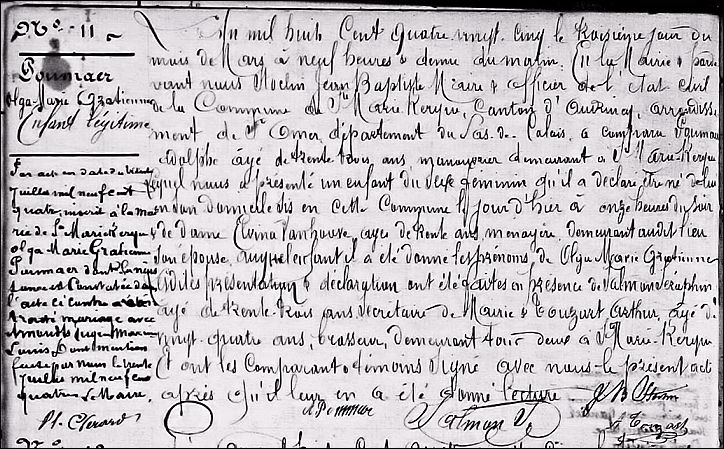 N° 11
Poumaer
Olga Marie Gratienne
Enfant légitime
Par acte en date du trente
Juillet mil neuf cent
quatre, inscrit à la mai
rie de Ste Marie Kerque
Olga Marie Gratienne
Poumaer dont la nais
sance est constatée dans
l'acte ci contre a con
tracté mariage avec
Eugène Marie
Louis Dont mention
faite par nous le trente
Juillet mil neuf cent
quatre Le Maire,
L'An mil huit Cent quatre vingt cinq le troisième jour du
mois de Mars à neuf heures & demie du matin. En la Mairie & par de
vant nous Stoclin Jean Baptiste Maire & officier de l'état civil
de la Commune de Ste Marie Kerque, Canton d'Audruicq, arrondisse
ment de St Omer, département du Pas-de-Calais, a comparu Poumaer
Adolphe âgé de trente trois ans manouvrier demeurant à Ste Marie-Kerque
lequel nous a présenté un enfant du sexe féminin qu'il a déclaré être né de lui
en son domicile sis en cette Commune le jour d'hier à onze heures du soir
& de dame Elvina Vanhouve, âgée de trente ans ménagère, demeurant audit lieu
son épouse, auquel enfant il a été donné les prénoms de Olga Marie Gratienne
Lesdites présentation & déclaration ont été faites en présence de Salmon Séraphin
âgé de trente-trois ans secrétaire de Mairie & Touzart Arthur, âgé de
vingt-quatre ans, brasseur, demeurant tous deux à Ste Marie-Kerque
Et ont les Comparant & témoins signé avec nous le présent acte
après qu'il leur en a été donné lecture.
A Poumaer
Salmon S.